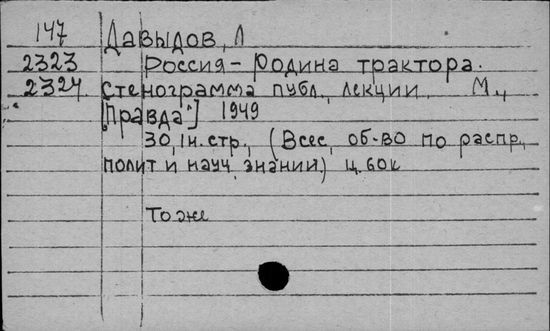 147 Давыдов, Л
2323 Россия - Родина трактора.
2324 Стенограмма публ., лекции, М.,
["Правда"] 1949
30, 1н. стр., (Всес, об-во по распр,
полит и науч. знаний.) ц. 60к
То же